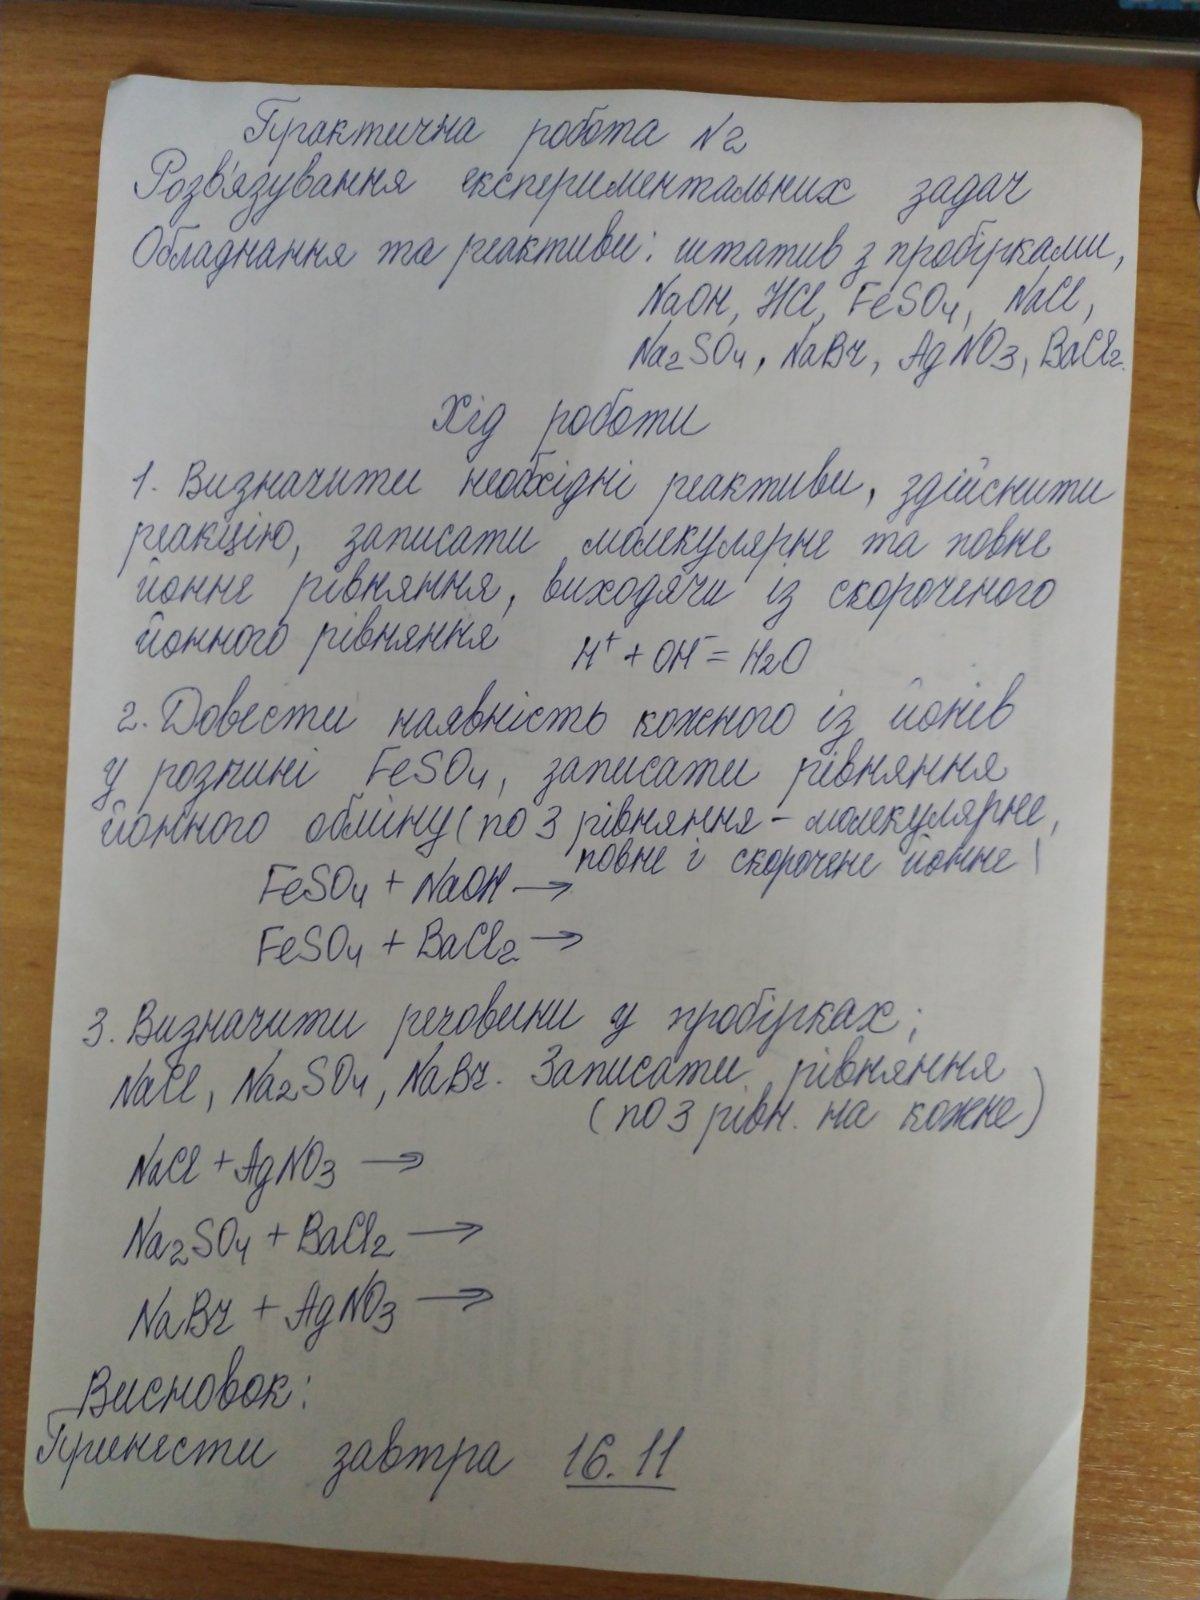 Практична робота №2
Розв'язування експериментальних задач
Обладнання та реактиви: штатив з пробірками,
NaOH, HCl, FeSO₄, NaCl,
Na₂SO₄, NaBr, AgNO₃, BaCl₂.
Хід роботи
1. Визначити необхідні реактиви, здійснити
реакцію, записати молекулярне та повне
йонне рівняння, виходячи із скороченого
йонного рівняння H⁺ + OH⁻ = H₂O
2. Довести наявність кожного із йонів
у розчині FeSO₄, записати рівняння
йонного обміну (по 3 рівняння - молекулярне,
повне і скорочене йонне)
FeSO₄ + NaOH →
FeSO₄ + BaCl₂ →
3. Визначити речовини у пробірках:
NaCl, Na₂SO₄, NaBr. Записати рівняння
(по 3 рівн. на кожне)
NaCl + AgNO₃ →
Na₂SO₄ + BaCl₂ →
NaBr + AgNO₃ →
Висновок:
Принести завтра 16.11